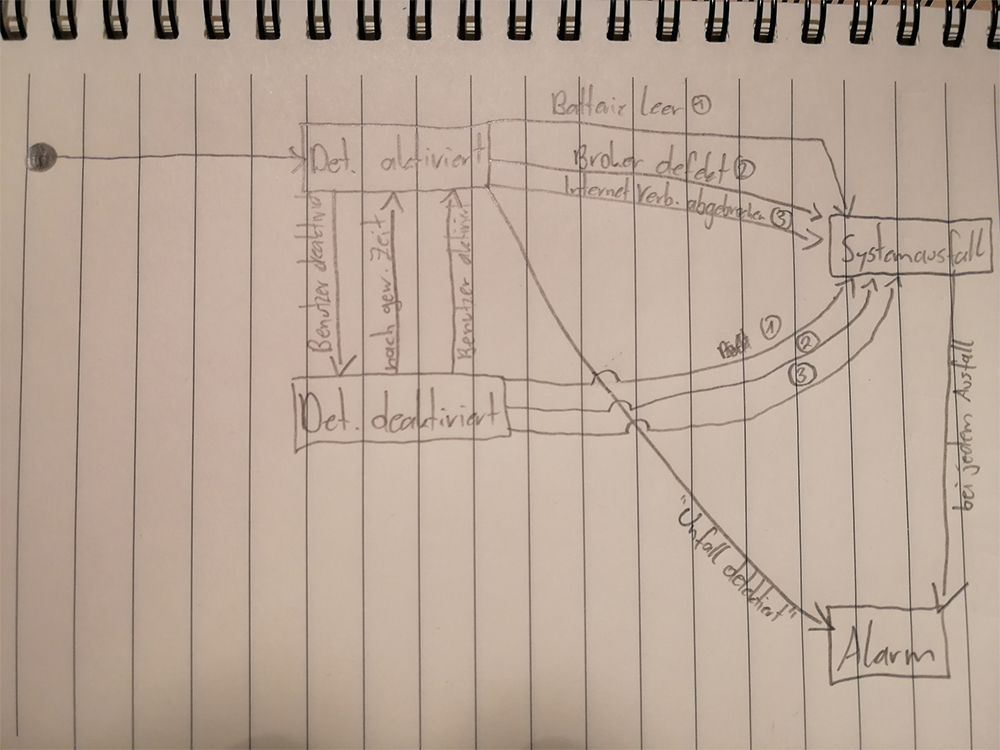 Batterie leer ①
Det. aktiviert
Broker defekt ②
Internet Verb. abgebrochen ③
Systemausfall
Benutzer deaktiviert
nach gew. Zeit
Benutzer aktiviert
①
②
③
Det. deaktiviert
bei jedem Ausfall
"Unfall detektiert"
Alarm